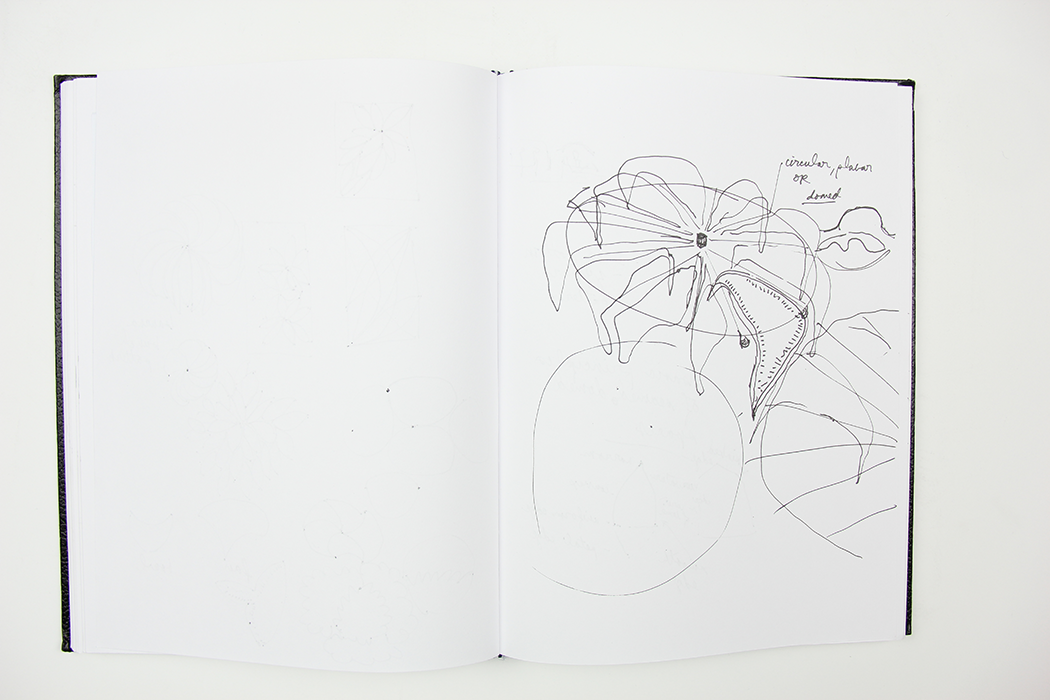 circular, planar
OR
domed